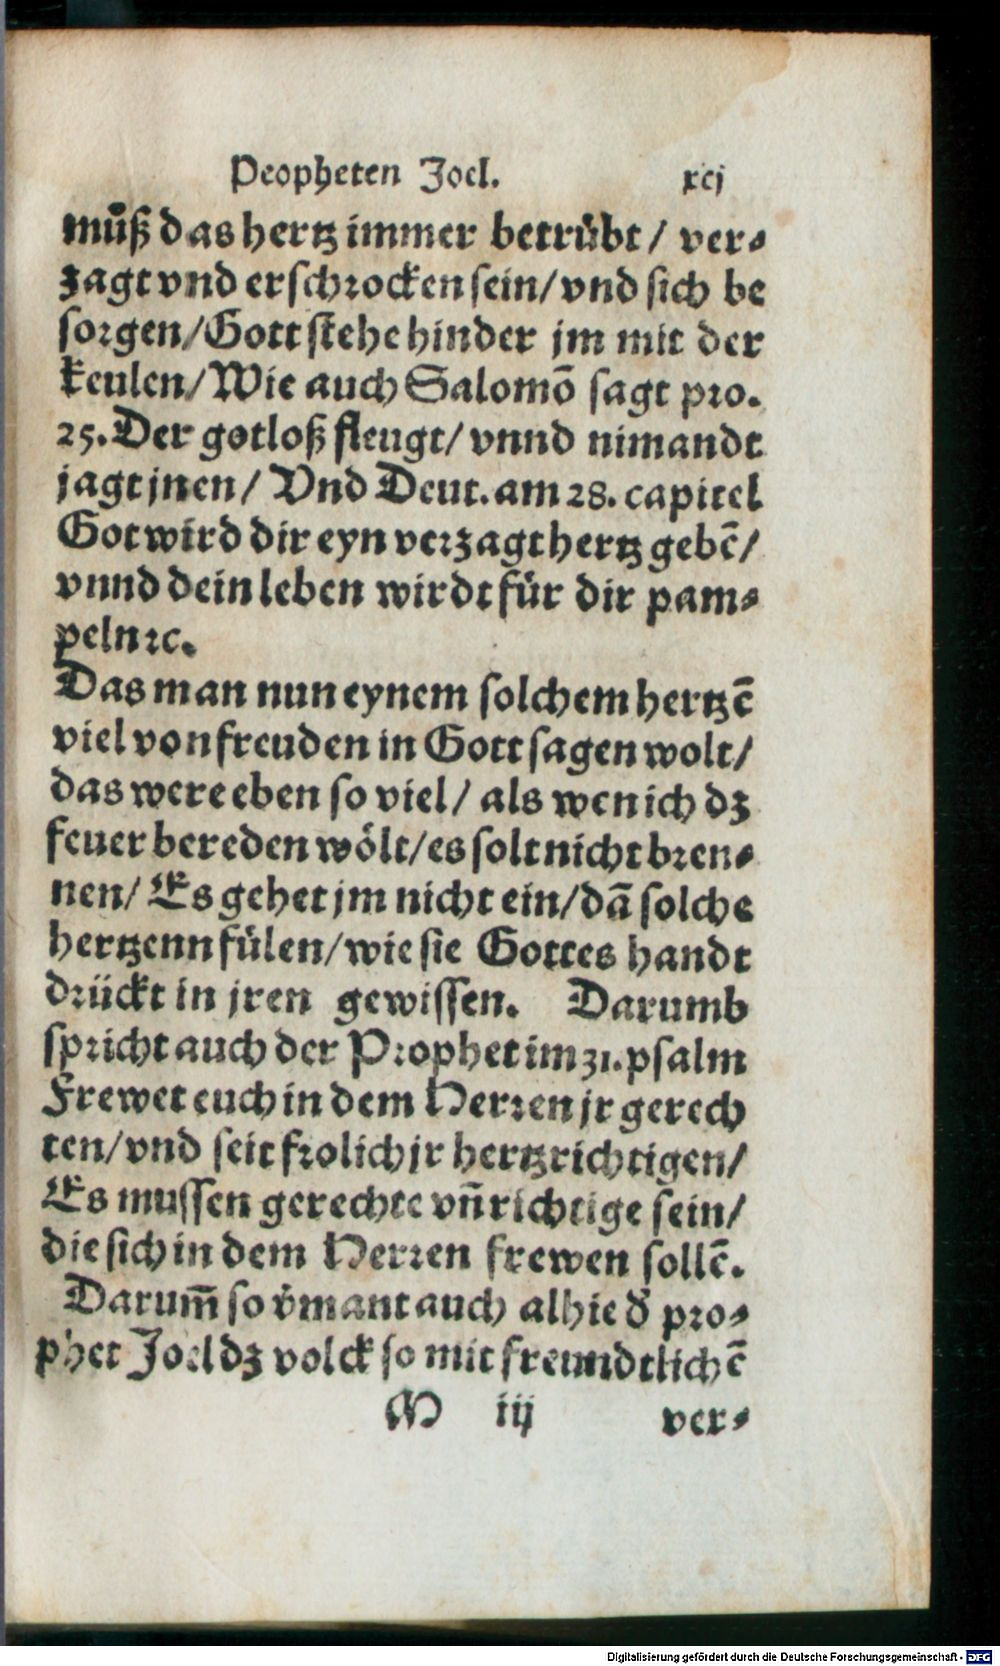 Propheten Joel. xcj
můß das hertz immer betrübt / ver⸗
zagt vnd erschrocken sein / vnd sich be
sorgen / Gott stehe hinder jm mit der
keulen / Wie auch Salomō sagt pro.
25. Der gotloß fleugt / vnnd nimandt
jagt jnen / Vnd Deut. am 28. capitel
Got wird dir eyn verzagt hertz gebē /
vnnd dein leben wirdt für dir pam⸗
peln ꝛc.
Das man nun eynem solchem hertzē
viel von freuden in Gott sagen wolt /
das were eben so viel / als wen ich dz
feuer bereden wölt / es solt nicht bren⸗
nen / Es gehet jm nicht ein / dā solche
hertzenn fülen / wie sie Gottes handt
drückt in jren gewissen. Darumb
spricht auch der Prophet im 31. psalm
Frewet euch in dem Herren jr gerech
ten / vnd seit frolich jr hertzrichtigen /
Es mussen gerechte vñ richtige sein /
die sich in dem Herren frewen sollē.
Darum̄ so v̄mant auch alhie d̄ pro⸗
phet Joel dz volck so mit freundtlichē
M iij ver⸗
Digitalisierung gefördert durch die Deutsche Forschungsgemeinschaft - DFG